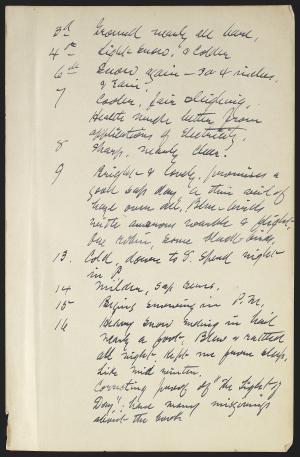 3d Ground nearly all bare,
4th Light snow, & colder
6th Snow again - 3 or 4 inches
& rain.
7 Cooler, fair sleighing,
Health much better from
applications of Electricity,
8 Sharp, nearly clear.
9 Bright & lovely, promises a
good sap day. A thin sort of
haze over all, Blue-birds
with amorous warble & flight.
One Robin, some black birds,
13. Cold, down to T. Spend night
in P
14 Milder, sap runs.
15 Begins snowing in P.M.
16 Heavy snow ending in hail
nearly a foot. Blew & rattled
all night. Kept me from sleep,
Like mid winter.
Correcting proof of "The Light of
Day"; have many misgivings
about the book